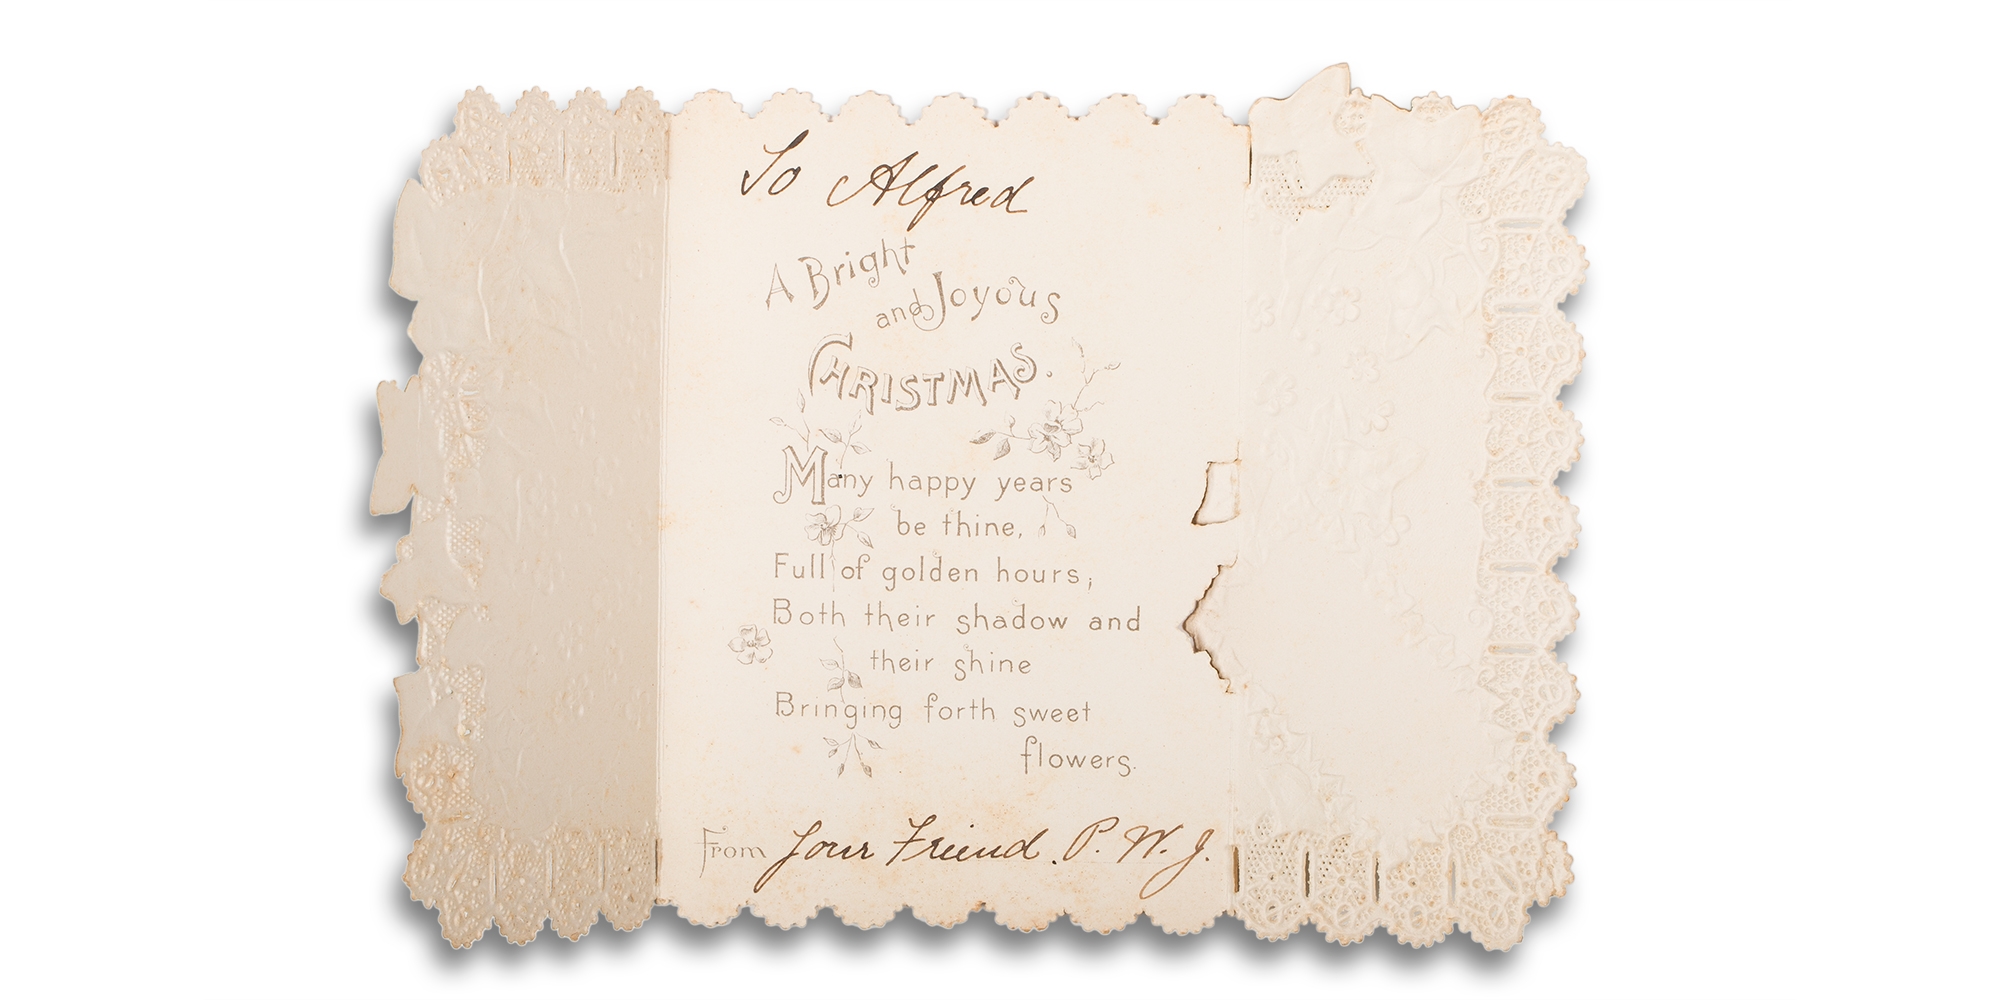 To Alfred
A Bright
and Joyous
CHRISTMAS.
Many happy years
be thine,
Full of golden hours;
Both their shadow and
their shine
Bringing forth sweet
flowers.
From Your Friend. P. W. J.